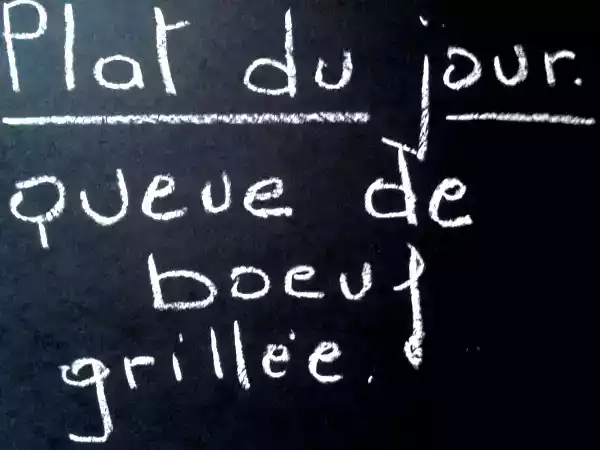 Plat du jour.
queue de
boeuf
grillée.